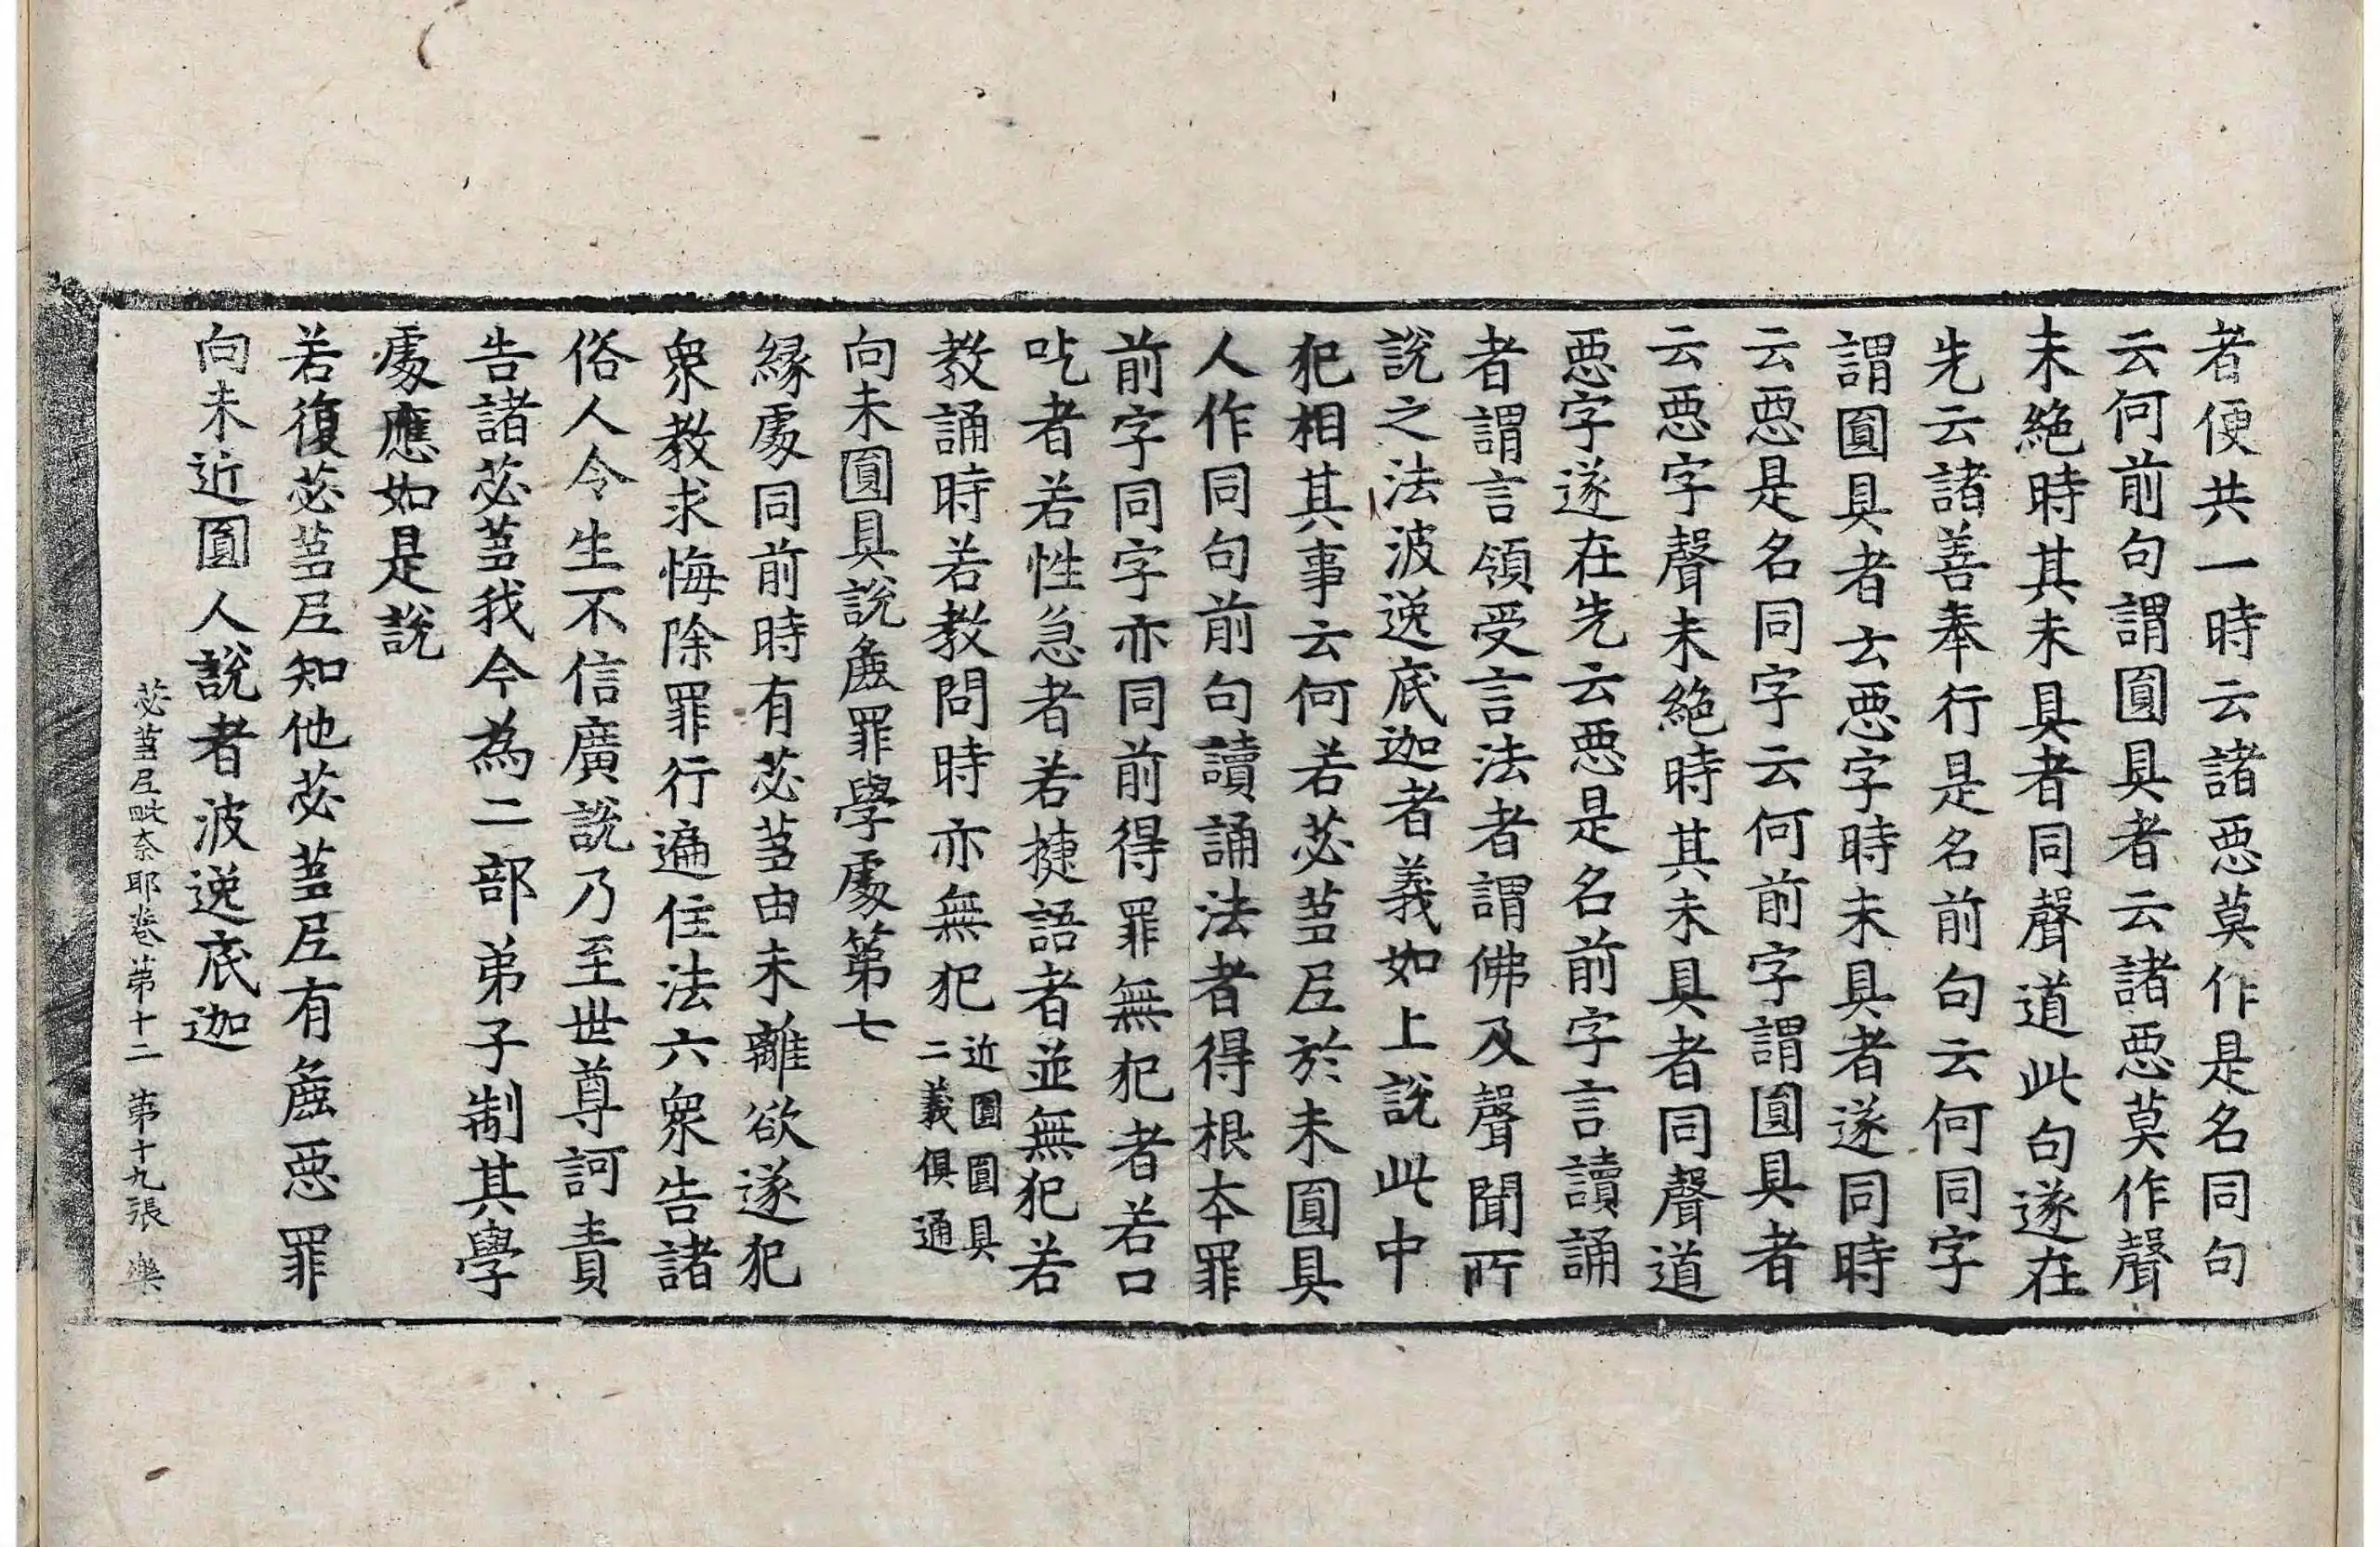 者便共一時云諸惡莫作是名同句
云何前句謂圓具者云諸惡莫作聲
未絕時其未具者同聲道此句遂在
先云諸善奉行是名前句云何同字
謂圓具者云惡字時未具者遂同時
云惡是名同字云何前字謂圓具者
云惡字聲未絕時其未具者同聲道
惡字遂在先云惡是名前字言讀誦
者謂言領受言法者謂佛及聲聞所
說之法波逸底迦者義如上說此中
犯相其事云何若苾蒭尼於未圓具
人作同句前句讀誦法者得根本罪
前字同字亦同前得罪無犯者若口
吃者若性急者若揵語者並無犯若
教誦時若教問時亦無犯近圓圓具二義俱通
向未圓具說麁罪學處第七
緣處同前時有苾蒭由未離欲遂犯
衆教求悔除罪行遍住法六衆告諸
俗人令生不信廣說乃至世尊訶責
告諸苾蒭我今為二部弟子制其學
處應如是說
若復苾蒭尼知他苾蒭尼有麁惡罪
向未近圓人說者波逸底迦
苾蒭尼毗奈耶卷第十二 第十九張 樂